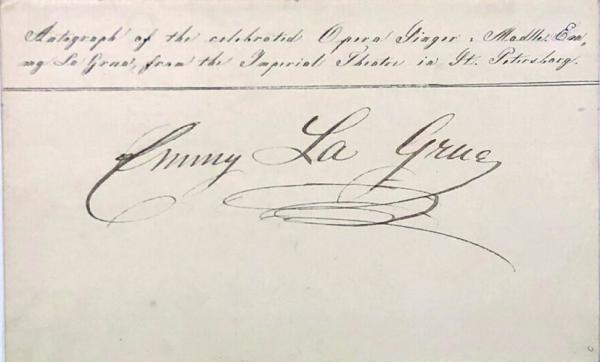 Autograph of the celebrated Opera Singer, Madlle. Em,
my La Grua, from the Imperial Theatre in St. Petersburg.
Emmy La Grua